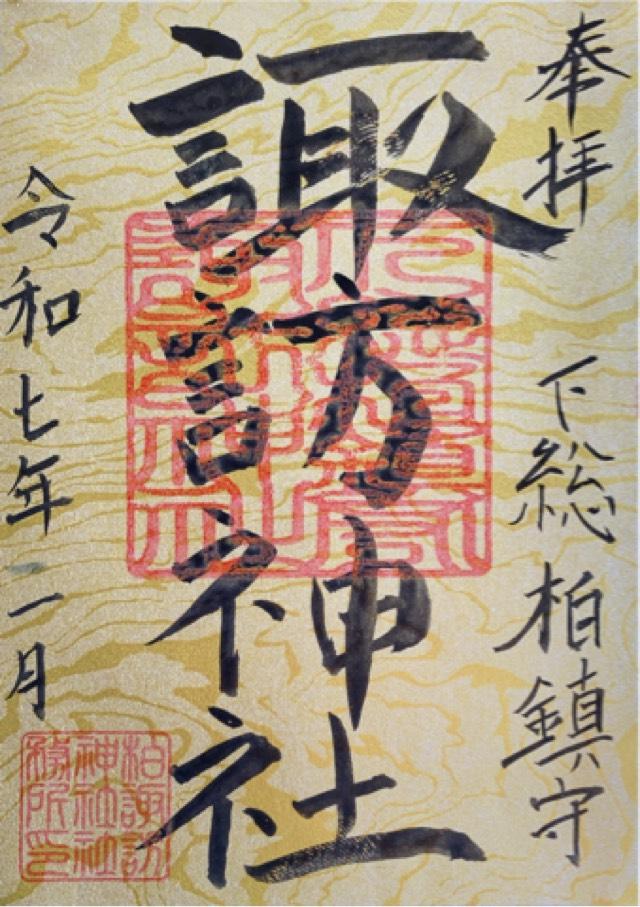 奉拝
下総 柏鎮守
諏訪神社
令和七年一月
柏諏訪
神社社
務所印